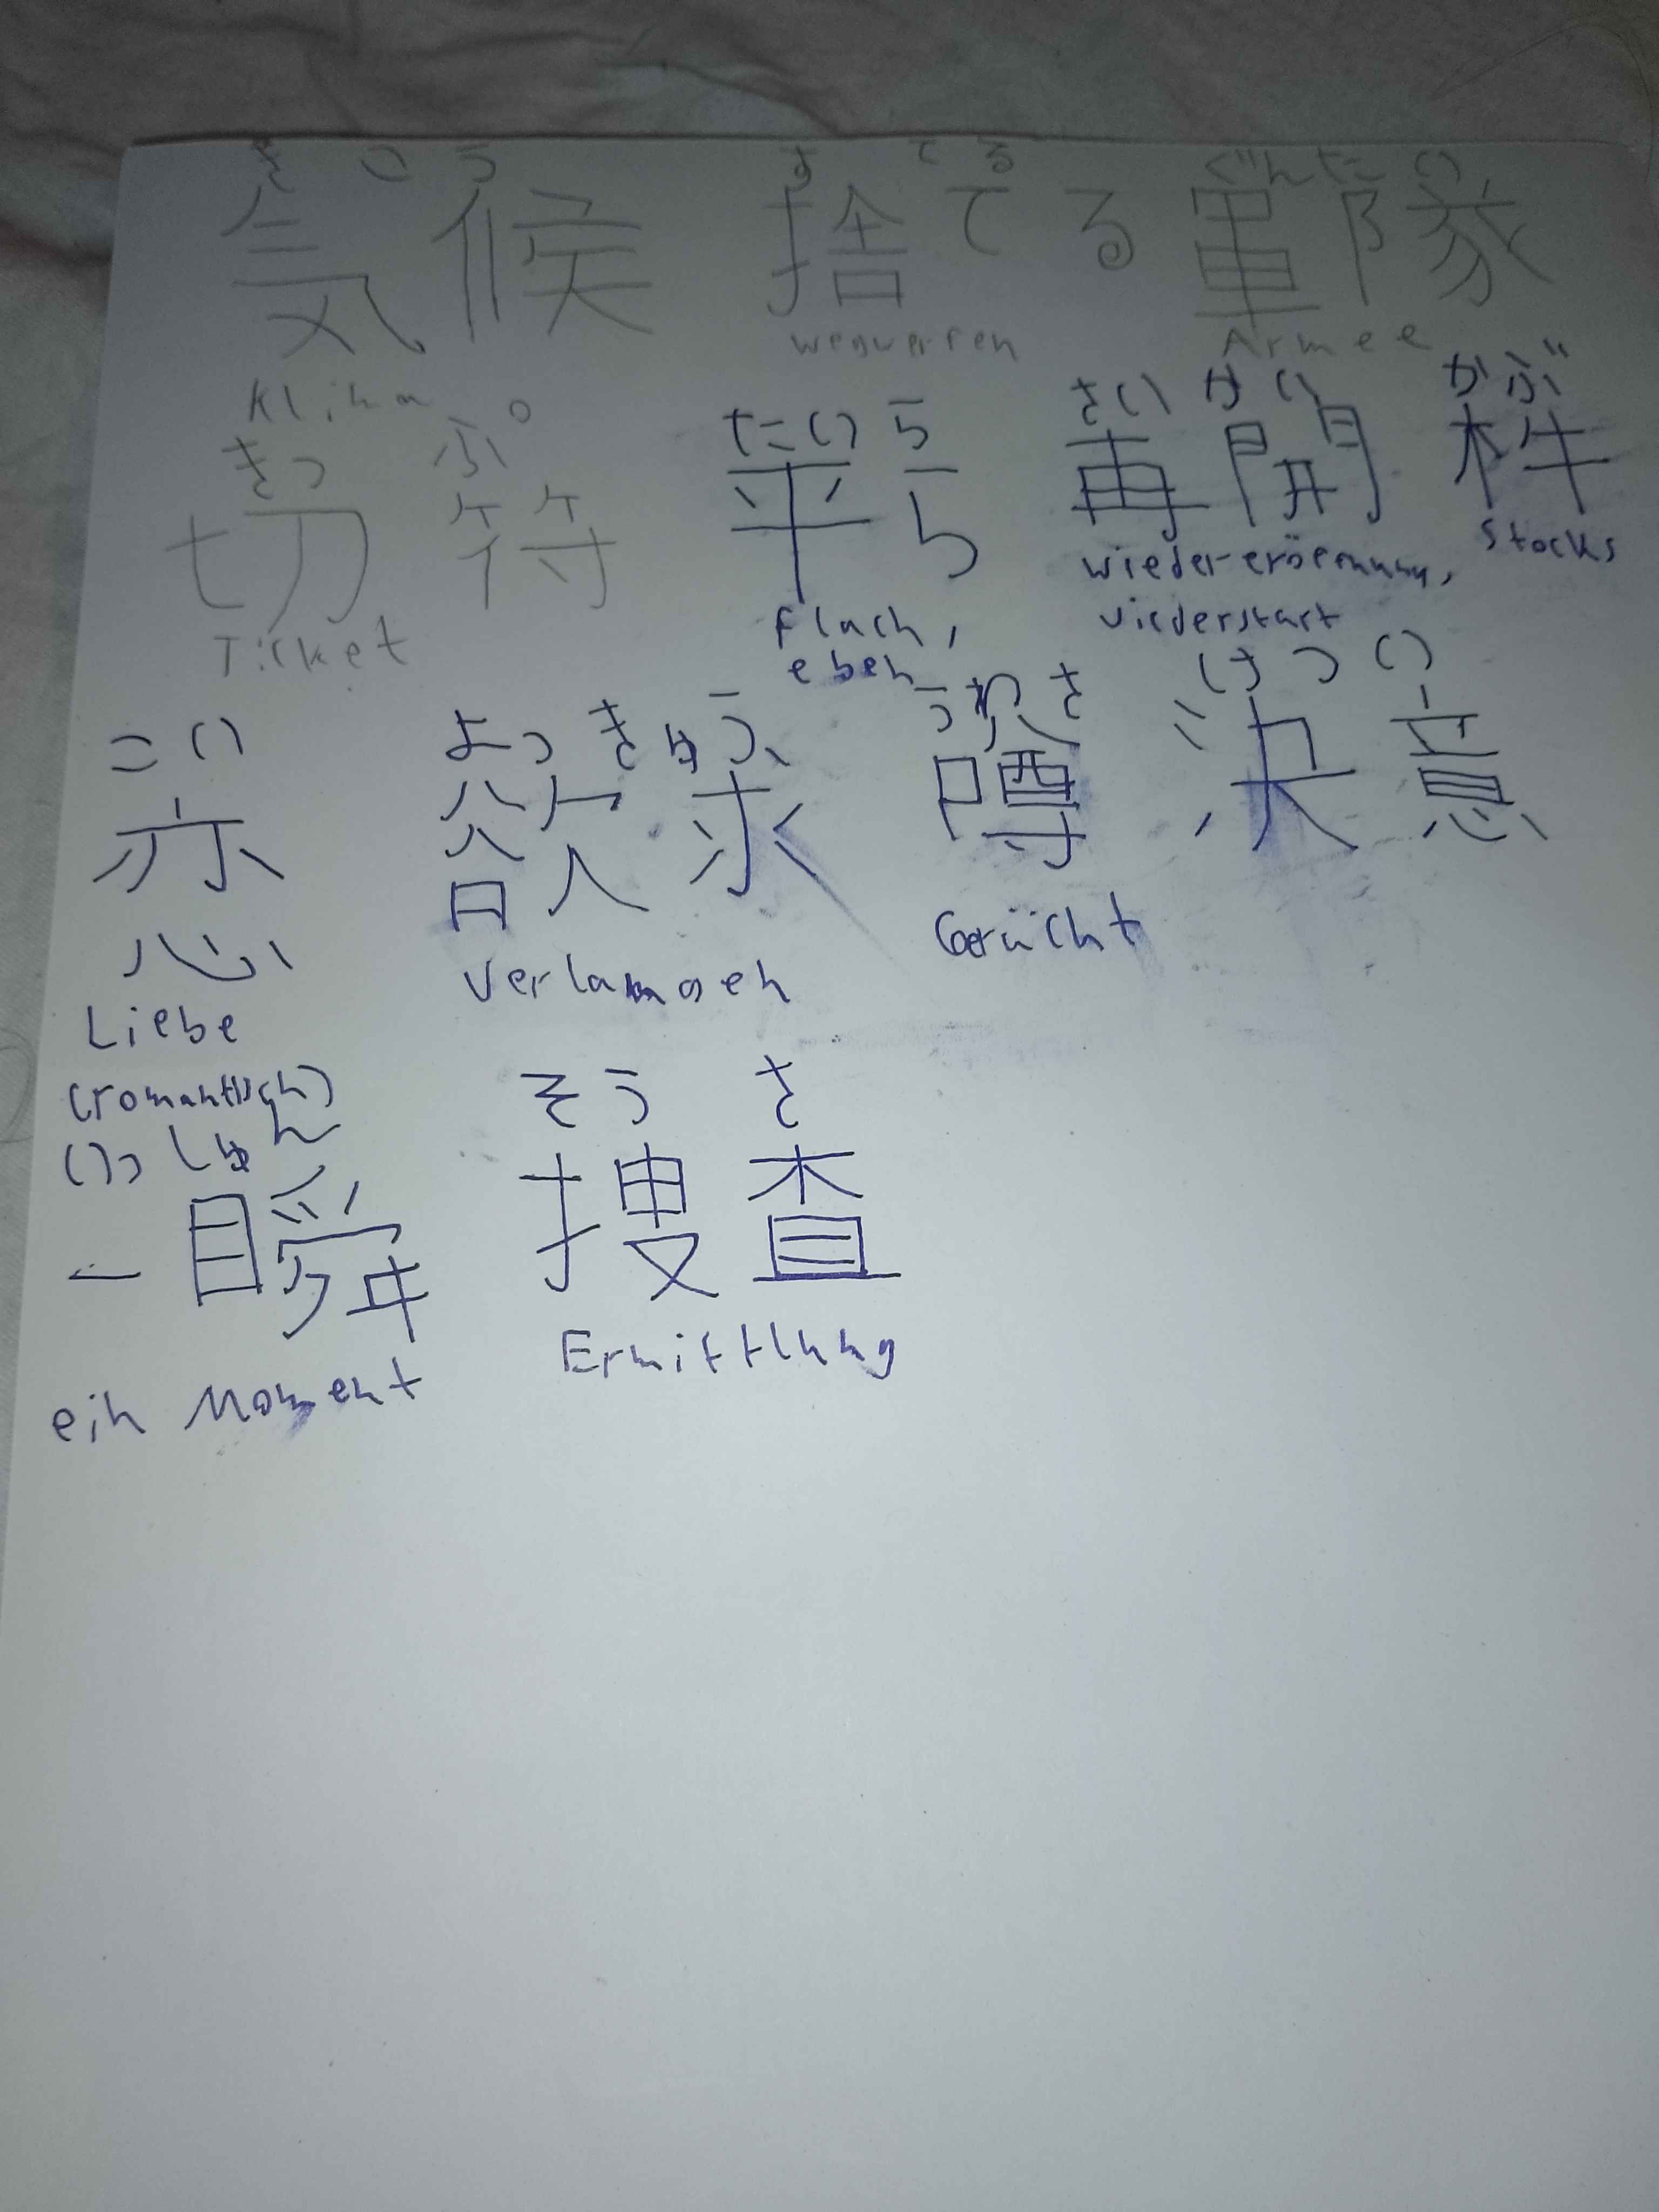 きこう すてる ぐんたい
気候 捨てる 軍隊
Klima wegwerfen Armee
きっぷ たいら さいかい かぶ
切符 平ら 再開 株
Ticket flach, eben wiedereröffnung, wiederstart Stocks
こい よっきゅう うわさ けつい
恋 欲求 噂 決意
Liebe (romantisch) Verlangen Gerücht
いっしゅん そうさ
一瞬 捜査
ein Moment Ermittlung